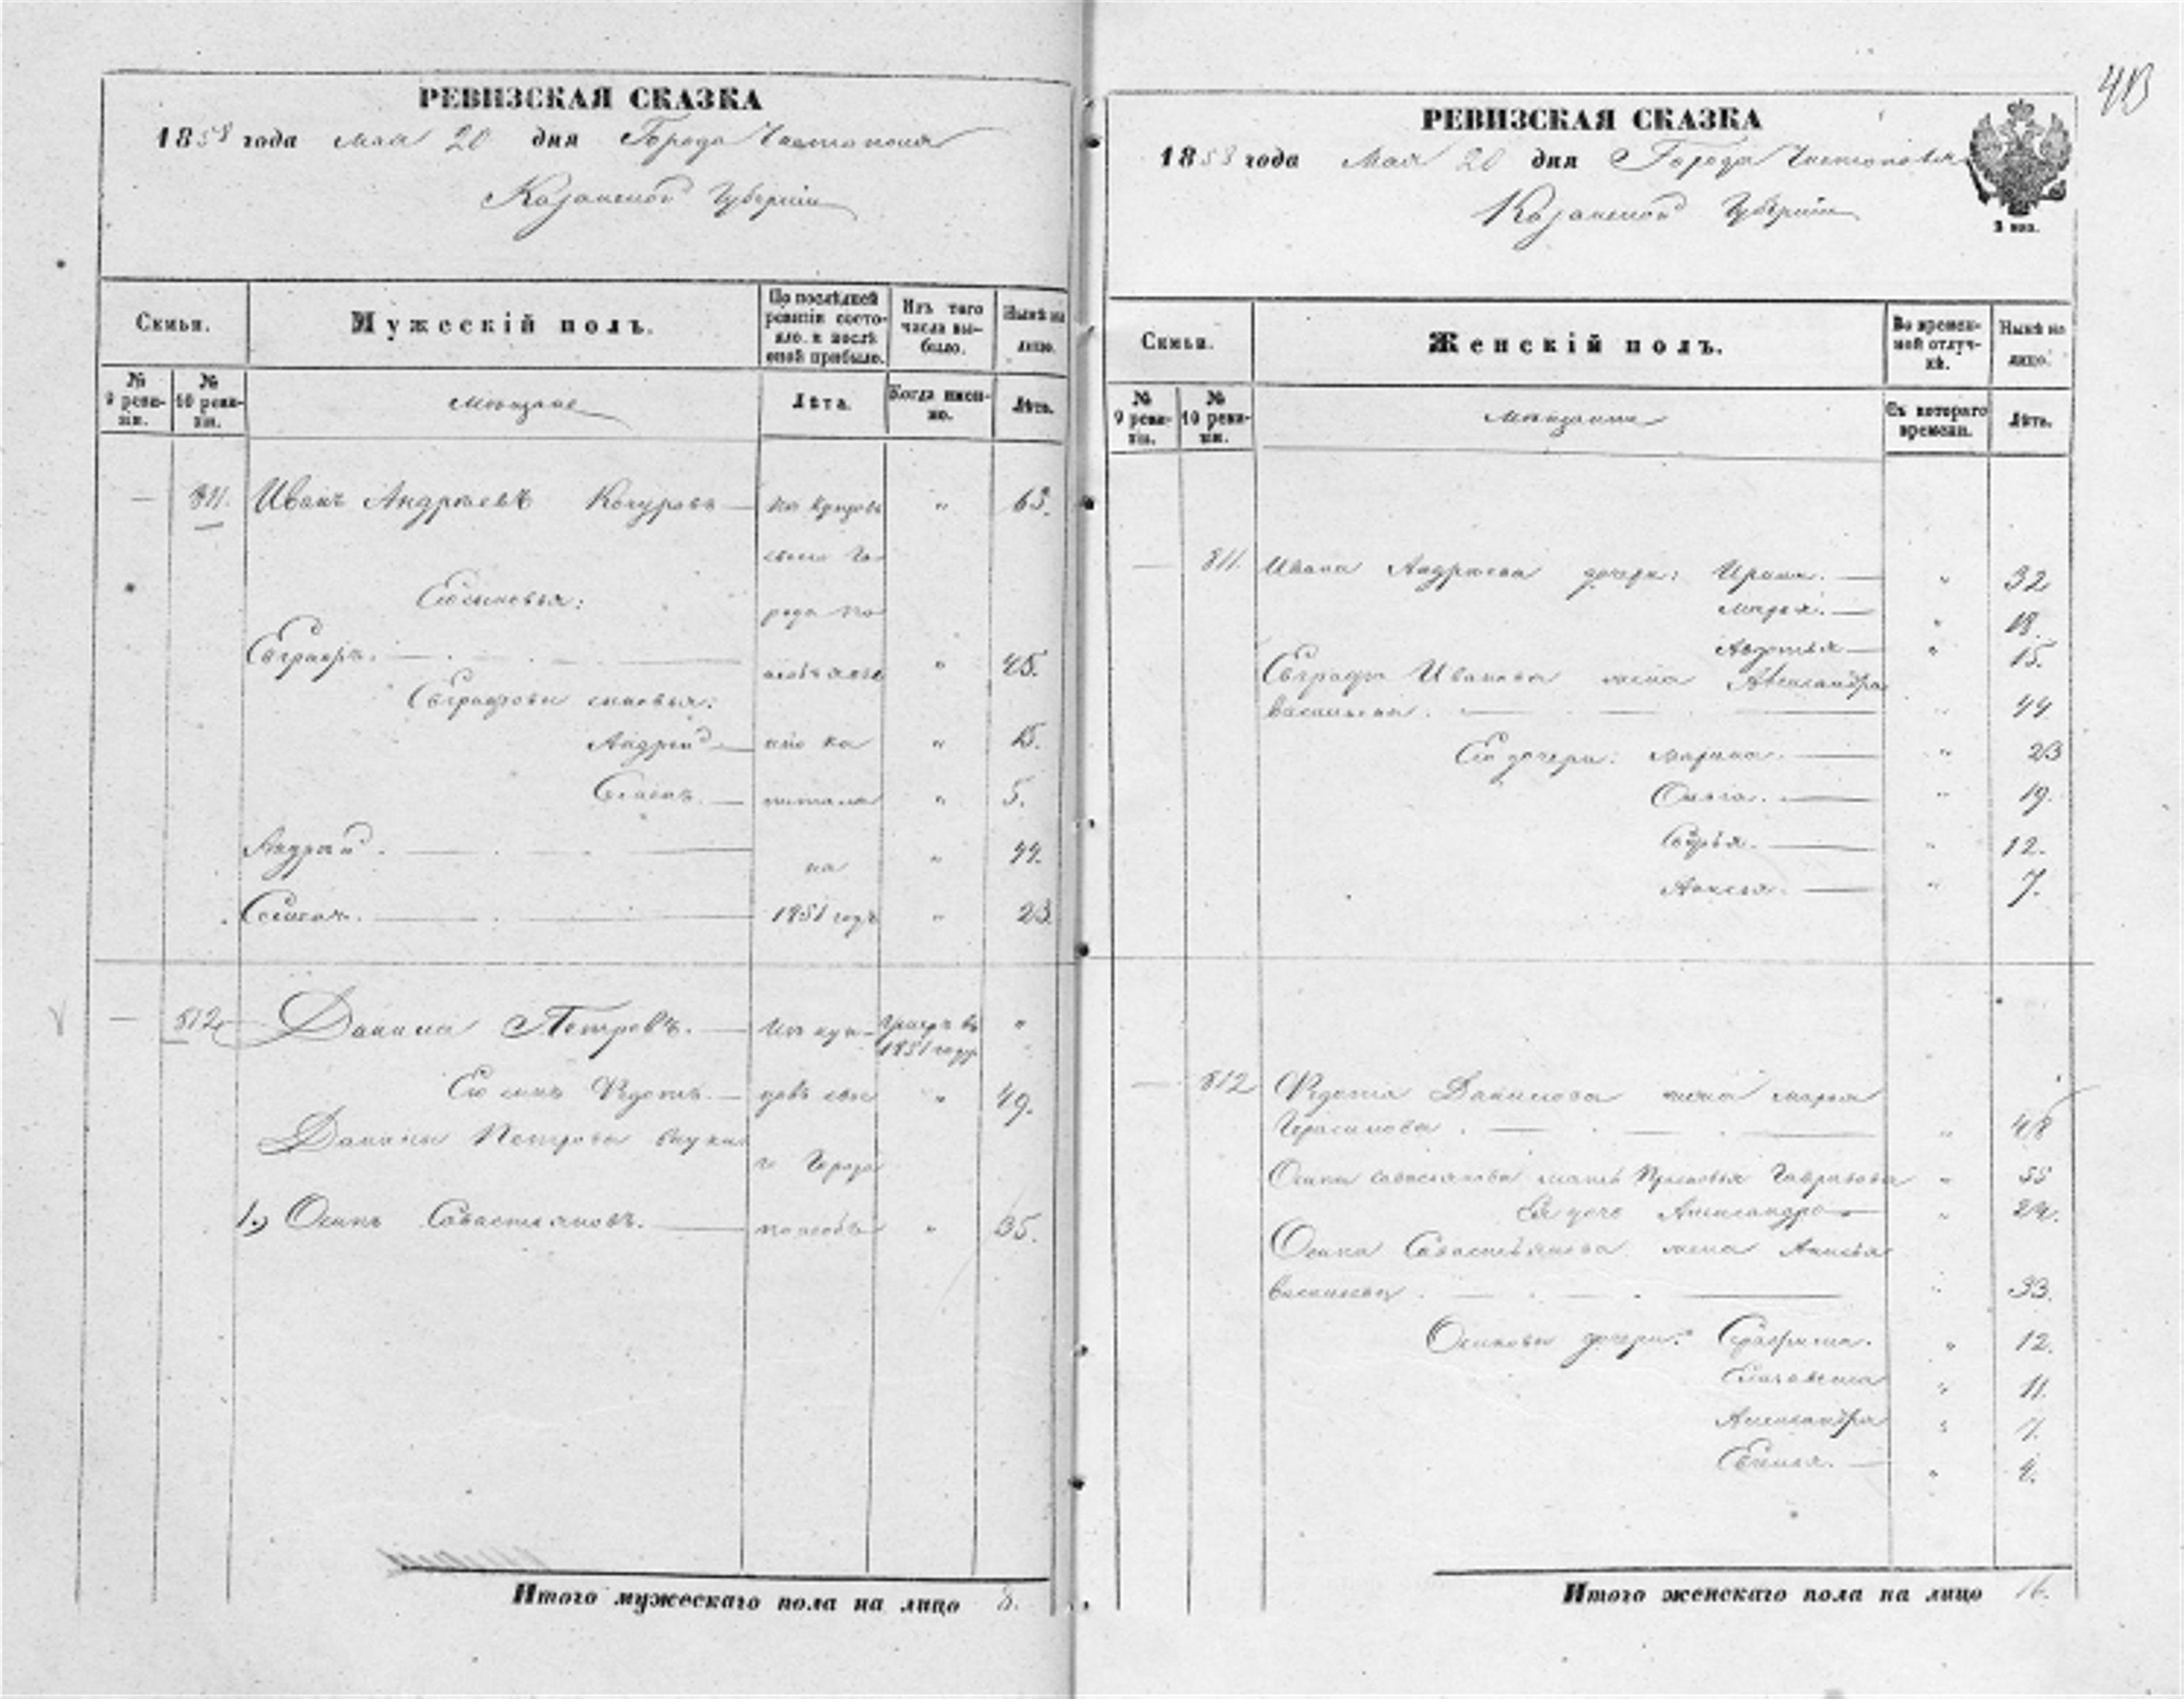 РЕВИЗСКАЯ СКАЗКА
1858 года мая 20 дня Города Чистополя
Казанской Губерніи
Семьи.
Мужескій полъ.
По послѣдней ревизіи состо-
яло, и послѣ оной прибыло.
Изъ того числа вы-
было.
Нынѣ на лицо.
№ 9 реви-
зіи.
№ 10 реви-
зіи.
Мещане
Лѣта.
Когда имен-
но.
Лѣта.
— 811. Иванъ Андреевъ — " 63.
сего Го-
Его сыновья:
рода по
Евграфъ. — " 45.
Евграфовы сыновья:
Андрей — " 15.
— " 5.
Андрей. — на " 44.
— 1851 годъ " 23.
— 812 Данила Петровъ. — Изъ куп- въ 1851 году "
Его сынъ Федотъ. — цовъ сего " 49.
Данилы Петрова внуки
Города
1.) Осипъ Савастьяновъ. — по особ " 35.
Итого мужескаго пола на лицо 8.
40
РЕВИЗСКАЯ СКАЗКА
1858 года Мая 20 дня Города Чистополя
Казанской Губерніи
Семьи.
Женскій полъ.
Во времен-
ной отлуч-
кѣ.
Нынѣ на лицо.
№ 9 реви-
зіи.
№ 10 реви-
зіи.
Мещанки
Съ котораго времени.
Лѣта.
— 811. Ивана Андреева дочери: Ирина. — " 32
Марья. — " 18.
Авдотья — " 15.
Евграфа Иванова жена Александра
Васильева. — " 44
Его дочери: — " 23
Ольга. — " 19.
— " 12.
— " 7.
— 812 Федота Данилова жена Марья
Герасимова. — " 48
Осипа Савастьянова мать Прасковья Гаврилова " 55
Ея дочь Александра — " 24.
Осипа Савастьянова жена Анисья
Васильева. — " 33.
Осиповы дочери: " 12.
Елизавета " 11.
Александра "
— " 4.
Итого женскаго пола на лицо 16.